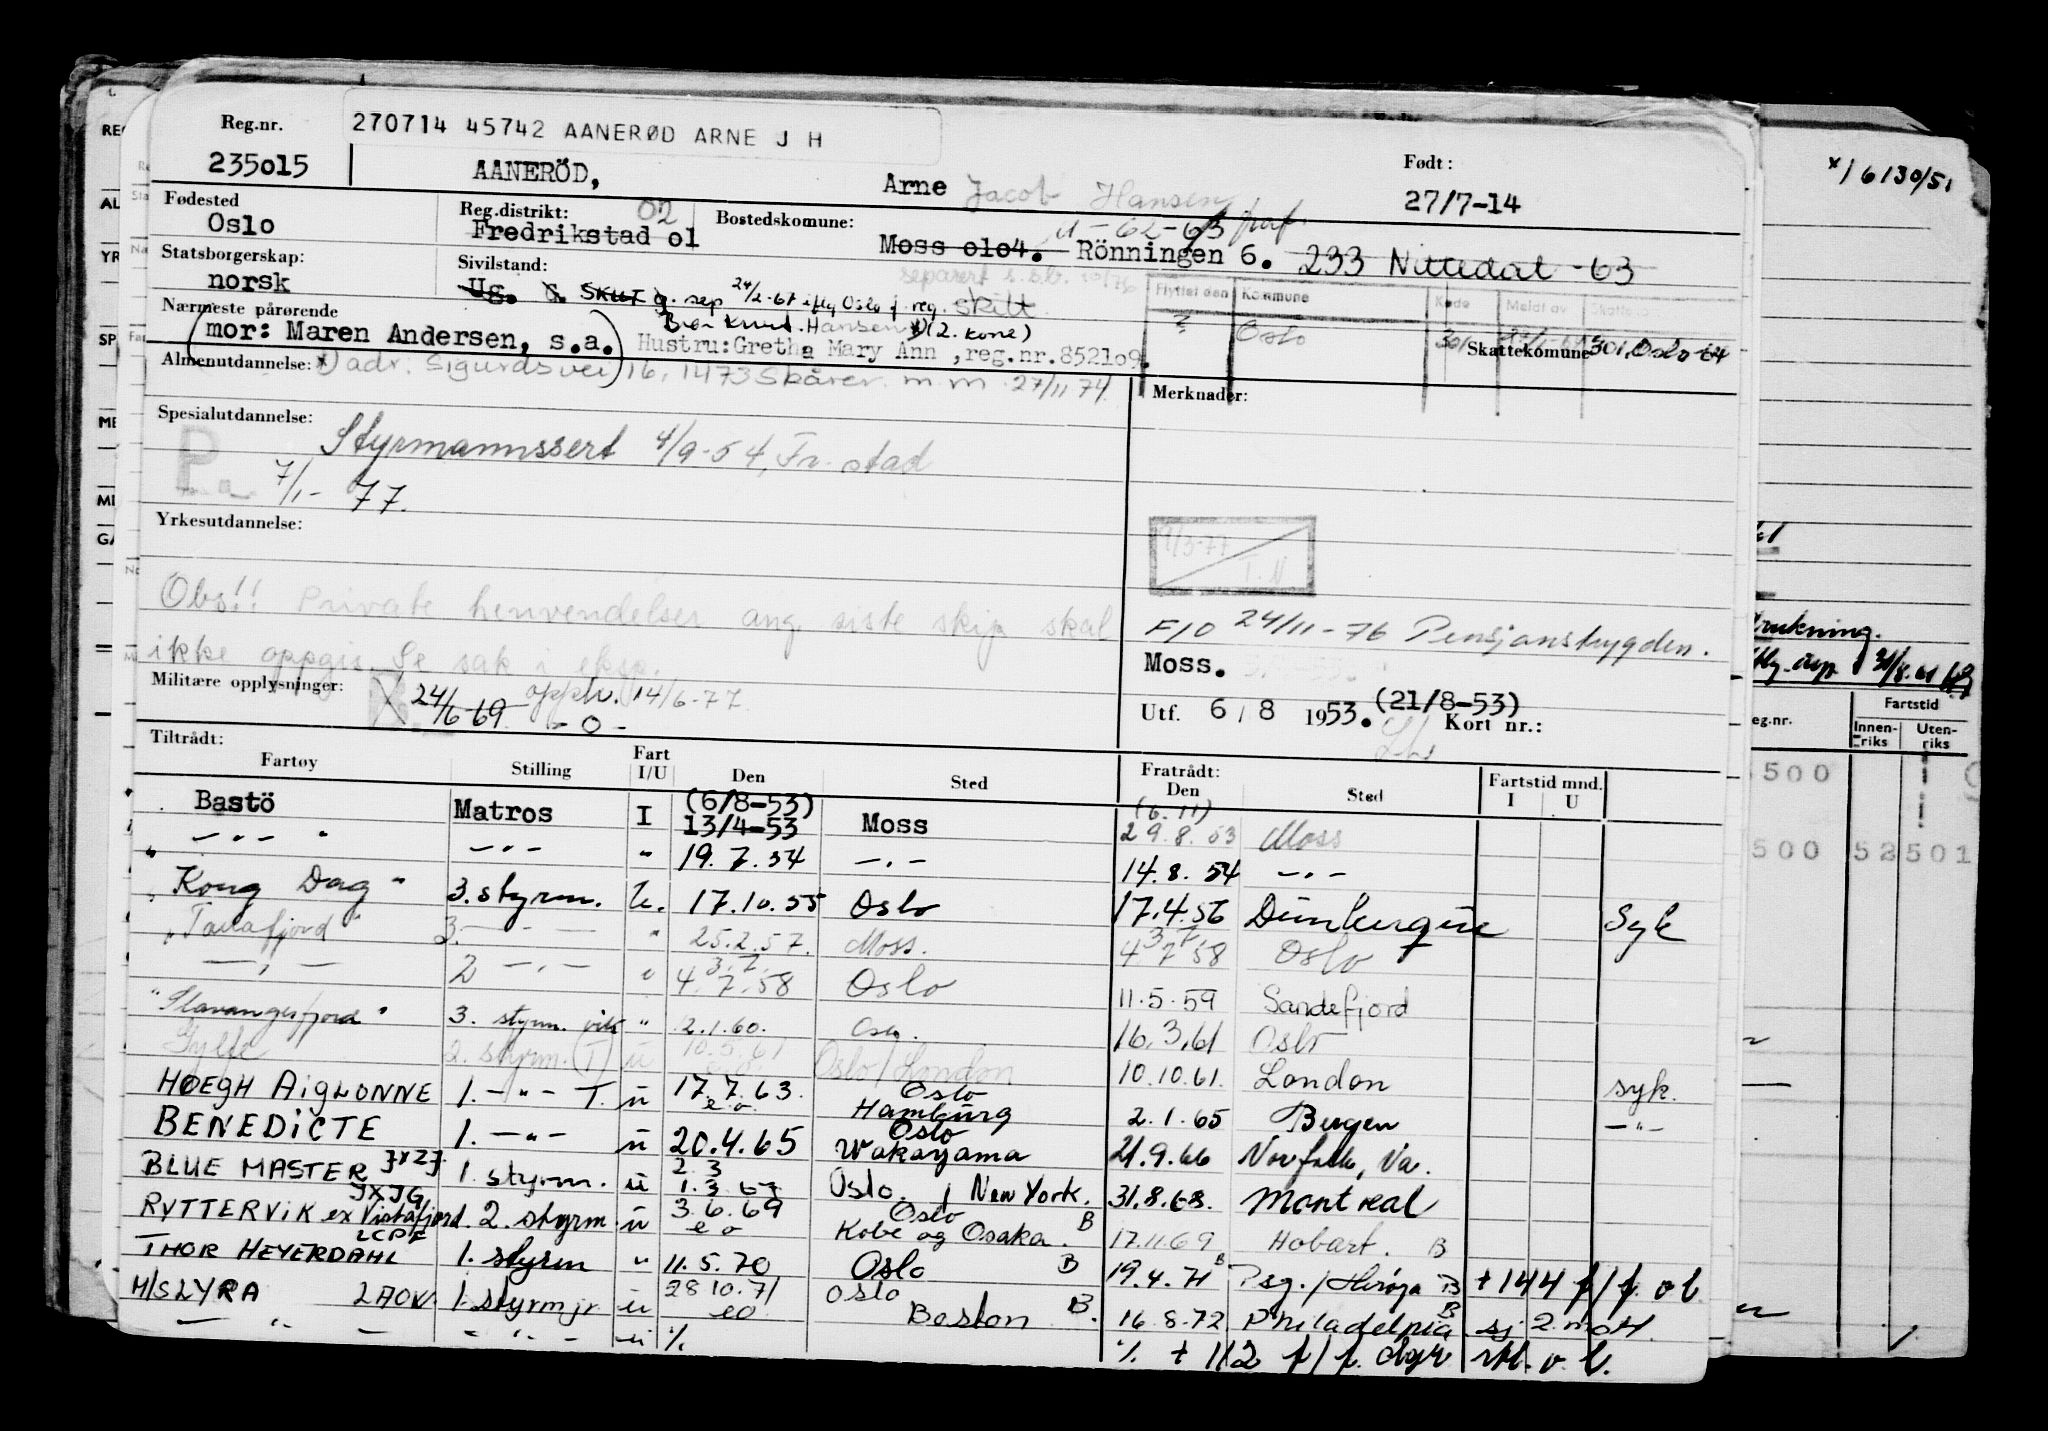 Reg.nr. 270714 45742 AANERØD ARNE J H
235015 AANERÖD, Arne Jacob Hansen Født: 27/7-14
Fødested Oslo Reg.distrikt: 02 Fredrikstad 01 Bostedskomune: Moss 0104. Rönningen 6. 233 Nittedal -63
Statsborgerskap: norsk Sivilstand: Ug. sep 24/2-67 Oslo f. reg. skilt
separert
Flyttet den Kommune Kode Meldt av
Oslo 301
Nærmeste pårørende Hansen *) (2. kone)
(mor: Maren Andersen, s.a.) Hustru: Grethe Mary Ann, reg.nr. 852109. Skattekomune 301, Oslo 64
Almenutdannelse: *) adr: Sigurdsvei 16, 1473 Skårer m.m 27/11 74
Merknader:
Spesialutdannelse: Styrmannssert 4/9-54, Fr.stad
P
7/1- 77.
Yrkesutdannelse:
9/3-77
T.N
Obs!! Private henvendelser ang. siste skip skal
ikke oppgis. Se sak i eksp.
F/O 24/11-76 Pensjonstrygden.
Moss.
Militære opplysninger: 24/6-69 opph. 14/6-77
- 0 -
Utf. 6/8 1953. (21/8-53) Kort nr.:
Tiltrådt: Fratrådt:
Fartøy Stilling Fart I/U Den Sted Den Sted Fartstid mnd. I U
Bastö Matros I (6/8-53) 13/4-53 Moss (6.11) 29.8.53 Moss
— " — — " — " 19.7.54 — " — 14.8.54 — " —
"Kong Dag" 3. styrm. U. 17.10.55 Oslo 17.4.56 Dünkerque Syk
"Tanafjord" 3. — " — " 25.2.57. Moss. 3.7. 4.7.58 Oslo
— " — 2 — " — " 3.7. 4.7.58 Oslo 11.5.59 Sandefjord
"Stavangerfjord" 3. styrm. vik " 2.1.60. Oslo 16.3.61 Oslo
Gylfe 2. styrm. (T) u 10.5.61 Oslo / London 10.10.61. London syk.
HØEGH AIGLONNE 1. — " — T. u 17.7.63. e.o. Oslo Hamburg 2.1.65 Bergen — " —
BENEDICTE 1. — " — u 20.4.65 Oslo Wakayama 21.9.66 Norfolk, Va.
BLUE MASTER JXZJ 1. styrm. u 2.3 1.3.67 Oslo. / New York. 31.8.68. Montreal
RYTTERVIK ex Vistafjord JXJG 2. styrm u 3.6.69 e o Oslo Kobe og Osaka. B 17.11.69 Hobart. B
THOR HEYERDAHL LCPF 1. styrm " 11.5.70 Oslo B 19.4.71 B Psg./ B + 144 f/f. o b.
M/S LYRA LAOW 1. styrm jr u 28.10.71 eo Oslo Boston B. 16.8.72 Philadelphia B sj 2 m o H.
— " — — " — u % % + 112 f/f.
x/6130/51
Fartstid
eg.nr. Innen-riks Uten-riks
500
500 52 501